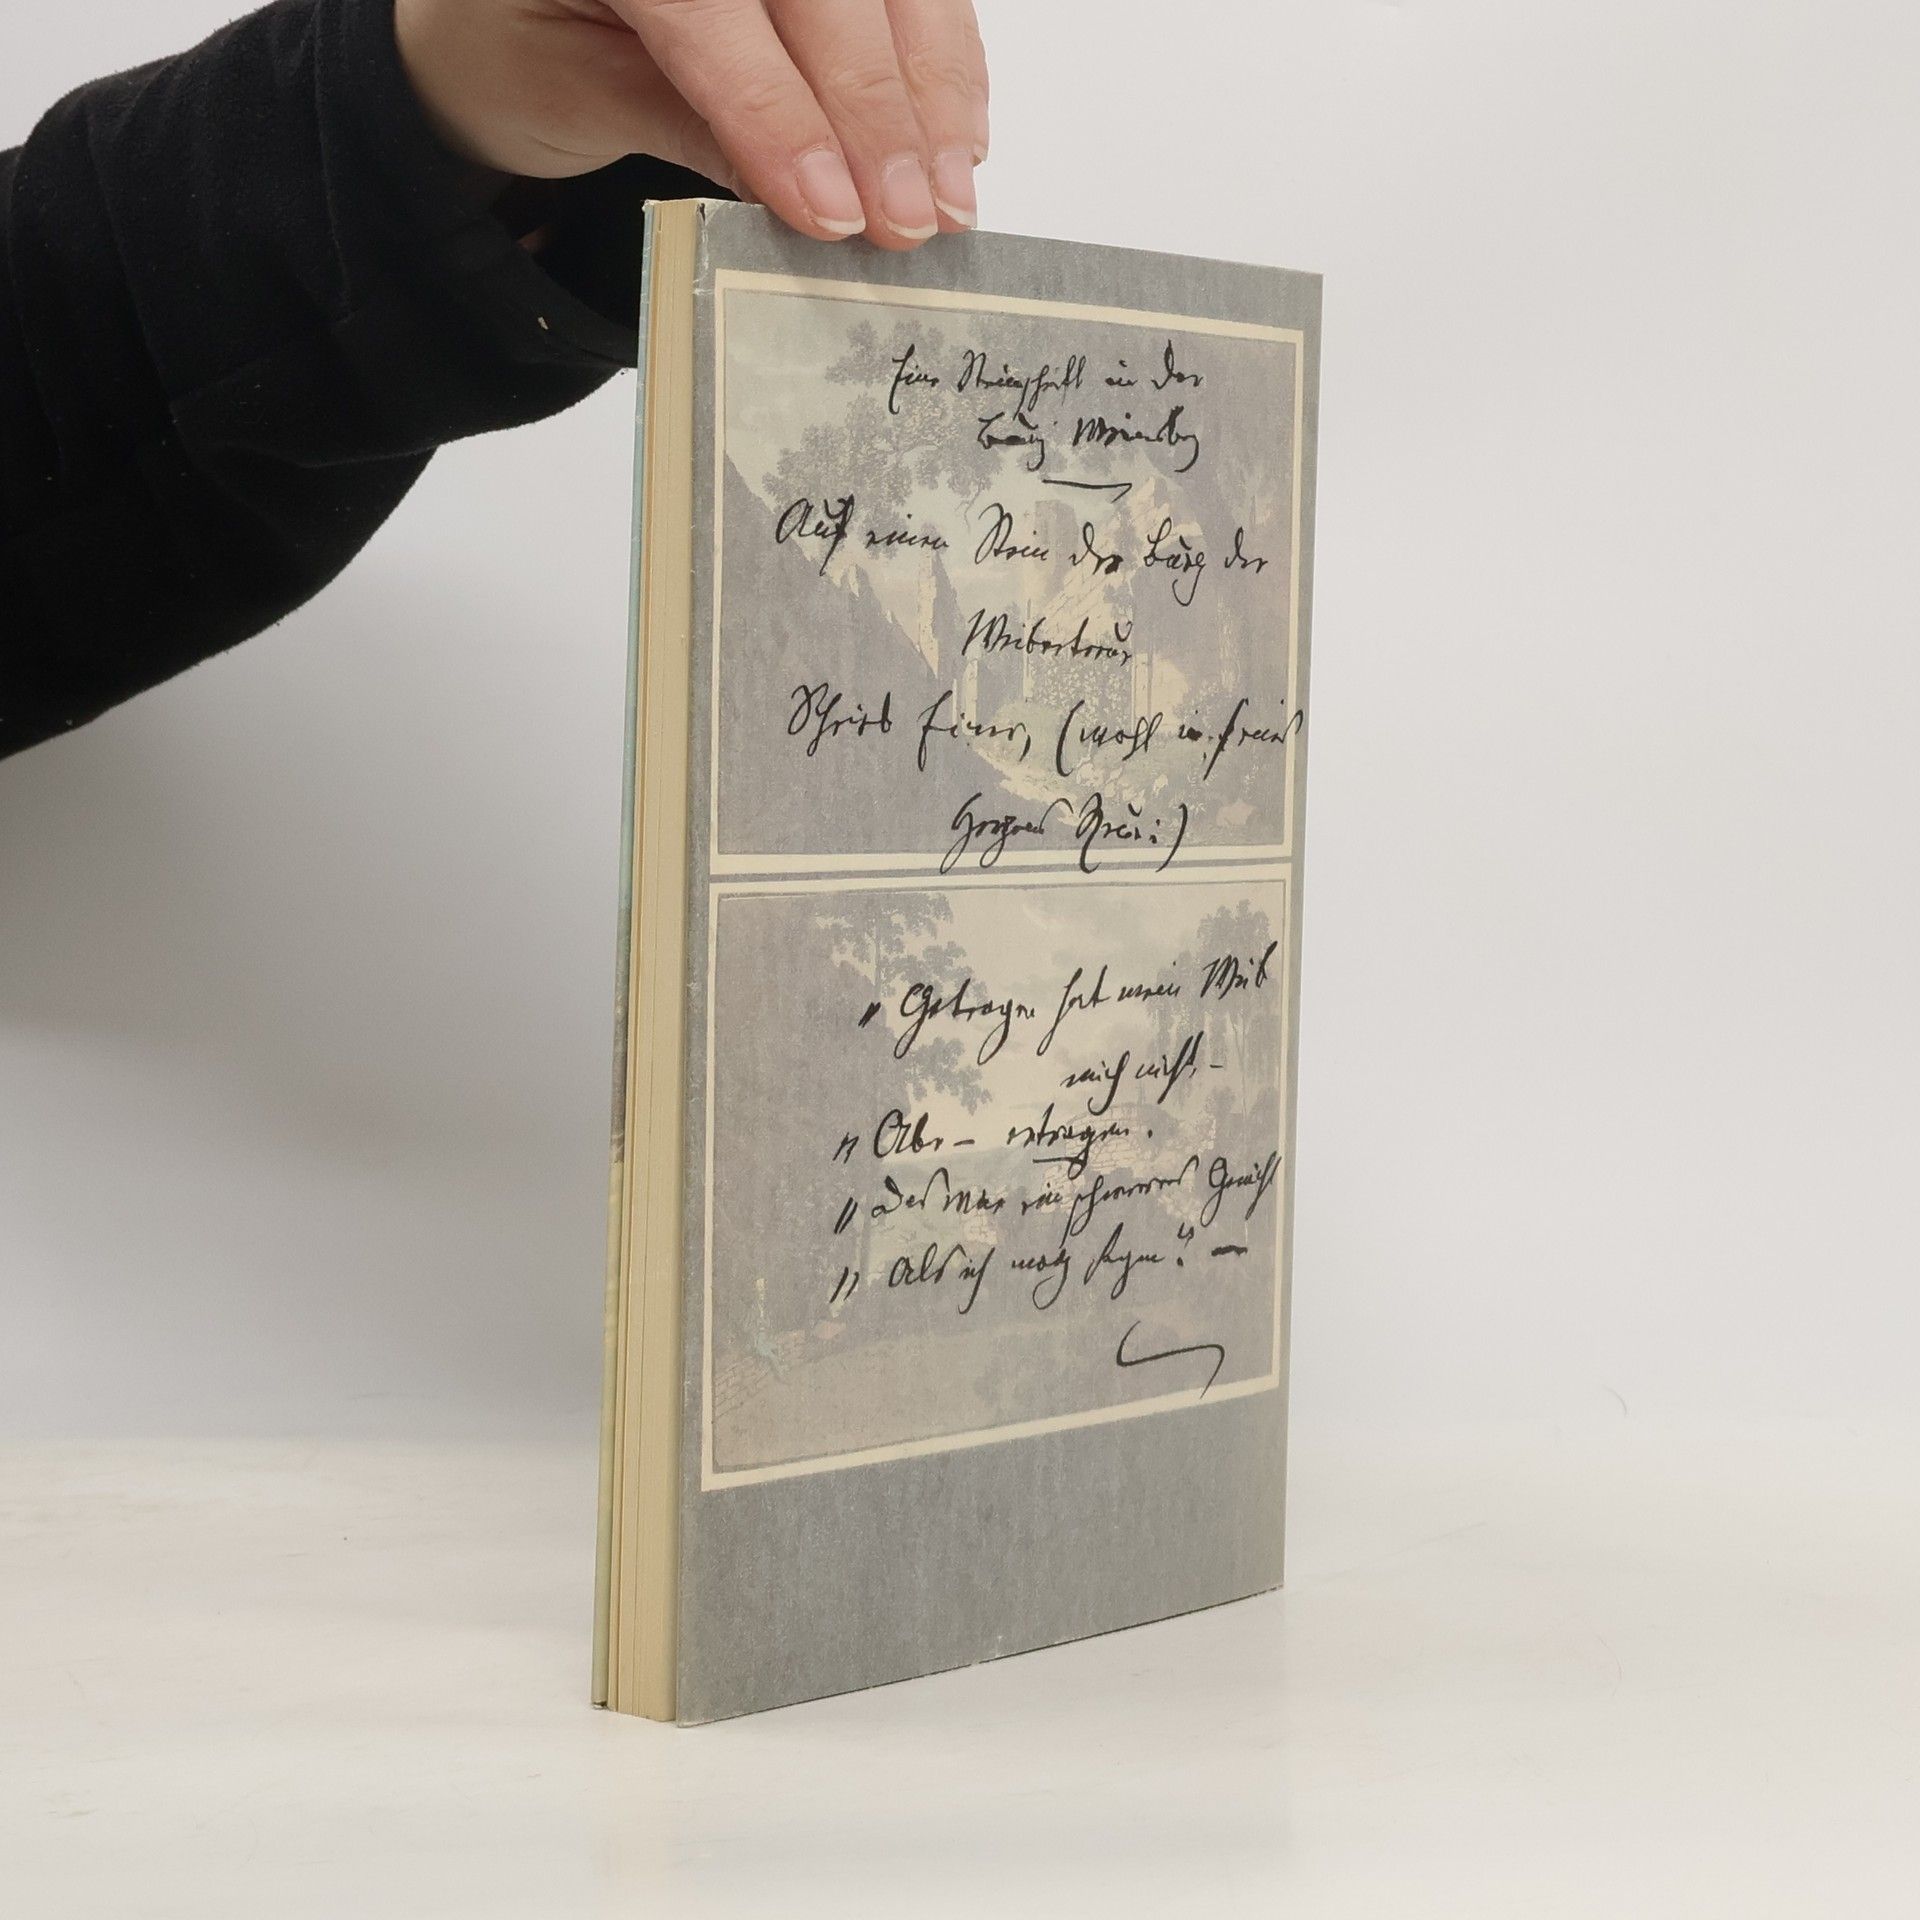 Eine Steinschrift in der
Burg Weinsberg
Auf einen Stein der Burg der
Weibertreue
Schrieb Einer, (wohl in seines
Herzens Reue:)
„Getragen hat mein Weib
mich nicht, –
„Aber – ertragen.
„Das war ein schwereres Gewicht
„Als ich mag sagen." –